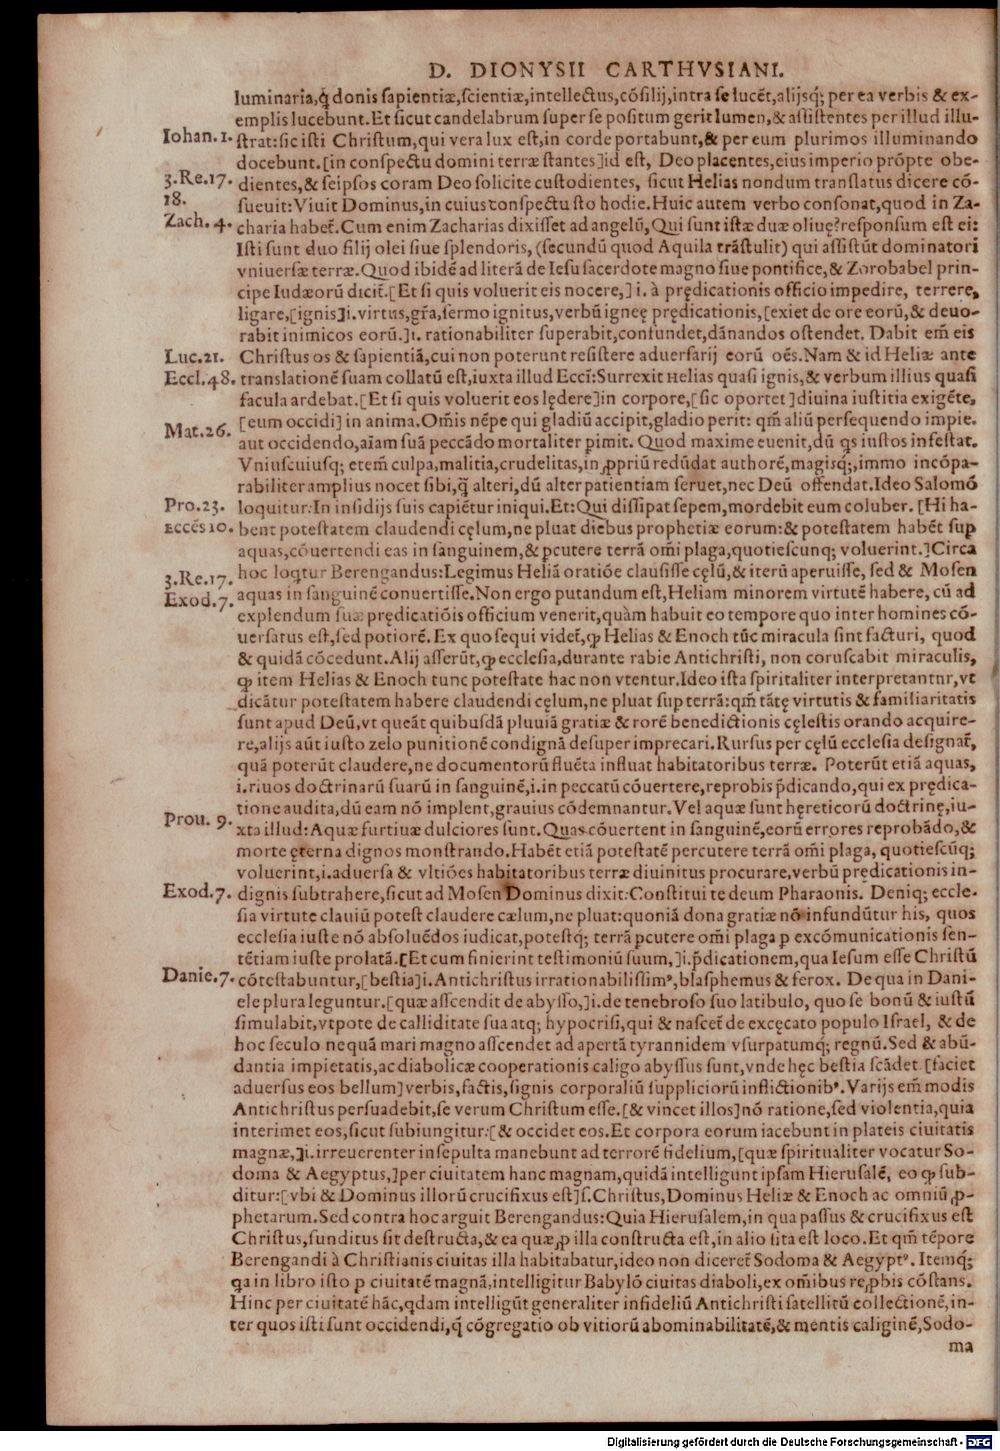 D. DIONYSII CARTHVSIANI.
luminaria,ꝗ donis sapientiæ,scientiæ,intellectus,cõsilij,intra se lucẽt,alijsq́; per ea verbis & ex-
emplis lucebunt.Et sicut candelabrum super se positum gerit lumen,& assistentes per illud illu-
Iohan.1. strat:sic isti Christum,qui vera lux est,in corde portabunt,& per eum plurimos illuminando
docebunt.[in conspectu domini terræ stantes]id est, Deo placentes,eius imperio prõpte obe-
3.Re.17. dientes,& seipsos coram Deo solicite custodientes, sicut Helias nondum translatus dicere cõ-
18. sueuit:Viuit Dominus,in cuius conspectu sto hodie.Huic autem verbo consonat,quod in Za-
Zach. 4. charia habet̃.Cum enim Zacharias dixisset ad angelũ,Qui sunt istæ duæ oliuę?responsum est ei:
Isti sunt duo filij olei siue splendoris,(secundũ quod Aquila trãstulit) qui assistũt dominatori
vniuersæ terræ.Quod ibidẽ ad literã de Iesu sacerdote magno siue pontifice,& Zorobabel prin-
cipe Iudæorũ dicit̃.[Et si quis voluerit eis nocere,] i. à prędicationis officio impedire, terrere,
ligare,[ignis]i.virtus,gr̃a,sermo ignitus,verbũ igneę prędicationis,[exiet de ore eorũ,& deuo-
rabit inimicos eorũ.]i. rationabiliter superabit,confundet,dãnandos ostendet. Dabit em̃ eis
Luc.21. Christus os & sapientiã,cui non poterunt resistere aduersarij eorũ oẽs.Nam & id Heliæ ante
Eccl.48. translationẽ suam collatũ est,iuxta illud Ecci̇̃:Surrexit Helias quasi ignis,& verbum illius quasi
facula ardebat.[Et si quis voluerit eos lędere]in corpore,[sic oportet]diuina iustitia exigẽte,
Mat.26. [eum occidi] in anima.Om̃is nẽpe qui gladiũ accipit,gladio perit: qm̃ aliũ persequendo impie.
aut occidendo,aĩam suã peccãdo mortaliter ꝑimit. Quod maxime euenit,dũ qs iustos infestat.
Vniuscuiusq; etem̃ culpa,malitia,crudelitas,in ꝓpriũ redũdat authorẽ,magisq́;,immo incõpa-
rabiliter amplius nocet sibi,q̃ alteri,dũ alter patientiam seruet,nec Deũ offendat.Ideo Salomõ
Pro.23. loquitur:In insidijs suis capiẽtur iniqui.Et:Qui dissipat sepem,mordebit eum coluber. [Hi ha-
Eccẽs 10. bent potestatem claudendi cęlum,ne pluat diebus prophetiæ eorum:& potestatem habẽt sup
aquas,cõuertendi eas in sanguinem,& ꝑcutere terrã om̃i plaga,quotiescunq; voluerint.]Circa
hoc loqtur Berengandus:Legimus Heliã oratiõe clausisse cęlũ,& iterũ aperuisse, sed & Mosen
3.Re.17. aquas in sanguinẽ conuertisse.Non ergo putandum est,Heliam minorem virtutẽ habere, cũ ad
Exod.7. explendum suæ prędicatiõis officium venerit,quàm habuit eo tempore quo inter homines cõ-
uersatus est,sed potiorẽ. Ex quo sequi videt̃,ꝙ Helias & Enoch tũc miracula sint facturi, quod
& quidã cõcedunt.Alij asserũt,ꝙ ecclesia,durante rabie Antichristi, non coruscabit miraculis,
ꝙ item Helias & Enoch tunc potestate hac non vtentur.Ideo ista spiritaliter interpretantnr,vt
dicãtur potestatem habere claudendi cęlum,ne pluat sup terrã:qm̃ tãtę virtutis & familiaritatis
sunt apud Deũ,vt queãt quibusdã pluuiã gratiæ & rorẽ benedictionis cęlestis orando acquire-
re,alijs aũt iusto zelo punitionẽ condignã desuper imprecari.Rursus per cęlũ ecclesia designat̃,
quã poterũt claudere,ne documentorũ fluẽta influat habitatoribus terræ. Poterũt etiã aquas,
i.riuos doctrinarũ suarũ in sanguinẽ,i.in peccatũ cõuertere,reprobis p̃dicando,qui ex prędica-
tione audita,dũ eam nõ implent,grauius cõdemnantur.Vel aquæ sunt hęreticorũ doctrinę,iu-
Prou. 9. xta illud:Aquæ furtiuæ dulciores sunt.Quas cõuertent in sanguinẽ,eorũ errores reprobãdo,&
morte ęterna dignos monstrando.Habẽt etiã potestatẽ percutere terrã om̃i plaga, quotiescũq;
voluerint,i.aduersa & vltiões habitatoribus terræ diuinitus procurare,verbũ prędicationis in-
Exod.7. dignis subtrahere,sicut ad Mosen Dominus dixit:Constitui te deum Pharaonis. Deniq; eccle-
sia virtute clauiũ potest claudere cælum,ne pluat:quoniã dona gratiæ nõ infundũtur his, quos
ecclesia iuste nõ absoluẽdos iudicat,potestq́; terrã ꝑcutere om̃i plaga ꝑ excõmunicationis sen-
tẽtiam iuste prolatã.[Et cum finierint testimoniũ suum,]i.p̃dicationem,qua Iesum esse Christũ
Danie.7. cõtestabuntur,[bestia]i.Antichristus irrationabilissimꝰ,blasphemus & ferox. De qua in Dani-
ele plura leguntur.[quæ ascendit de abysso,]i.de tenebroso suo latibulo, quo se bonũ & iustũ
simulabit,vtpote de calliditate sua atq; hypocrisi,qui & nascet̃ de excęcato populo Israel, & de
hoc seculo nequã mari magno ascendet ad apertã tyrannidem vsurpatumq́; regnũ.Sed & abũ-
dantia impietatis,ac diabolicæ cooperationis caligo abyssus sunt,vnde hęc bestia scãdet.[faciet
aduersus eos bellum]verbis,factis,signis corporaliũ suppliciorũ inflictionibꝰ.Varijs em̃ modis
Antichristus persuadebit,se verum Christum esse.[& vincet illos]nõ ratione,sed violentia,quia
interimet eos,sicut subiungitur:[& occidet eos.Et corpora eorum iacebunt in plateis ciuitatis
magnæ,]i.irreuerenter insepulta manebunt ad terrorẽ fidelium,[quæ spiritualiter vocatur So-
doma & Aegyptus,]per ciuitatem hanc magnam,quidã intelligunt ipsam Hierusalẽ, eo ꝙ sub-
ditur:[vbi & Dominus illorũ crucifixus est]s.Christus,Dominus Heliæ & Enoch ac omniũ ꝓ-
phetarum.Sed contra hoc arguit Berengandus:Quia Hierusalem,in qua passus & crucifixus est
Christus,funditus sit destructa,& ea quæ ꝓ illa constructa est,in alio sita est loco.Et qm̃ tẽpore
Berengandi à Christianis ciuitas illa habitabatur,ideo non diceret̃ Sodoma & Aegyptꝰ. Itemq́;
qa in libro isto ꝑ ciuitatẽ magnã,intelligitur Babylõ ciuitas diaboli,ex om̃ibus reꝓbis cõstans.
Hinc per ciuitatẽ hãc,qdam intelligũt generaliter infideliũ Antichristi satellitũ collectionẽ,in-
ter quos isti sunt occidendi,q̃ cõgregatio ob vitiorũ abominabilitatẽ,& mentis caliginẽ,Sodo-
ma
Digitalisierung gefördert durch die Deutsche Forschungsgemeinschaft - DFG